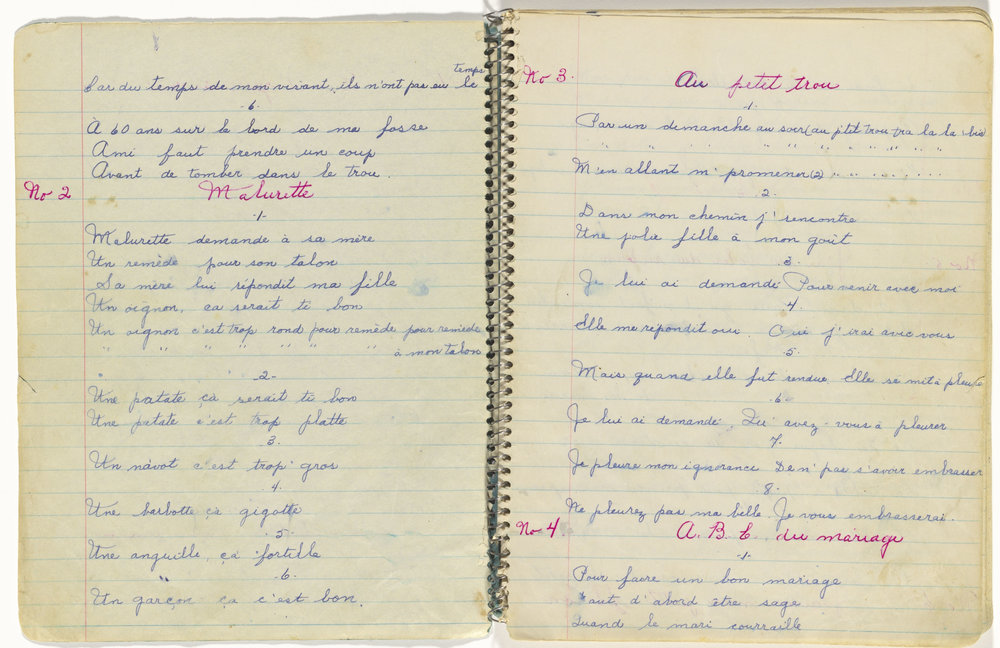 temps
Car du temps de mon vivant, ils n'ont pas eu le
.6.
À 60 ans sur le bord de ma fosse
Ami faut prendre un coup
Avant de tomber dans le trou.
No 2 Malurette
.1.
Malurette demande à sa mère
Un remède pour son talon
Sa mère lui répondit ma fille
Un oignon, ca serait ti bon
Un oignon c'est trop rond pour remède pour remède
" " " " " " " à mon talon
-2-
Une patate çà serait ti bon
Une patate c'est trop platte
3.
Un navot c'est trop gros
.4.
Une barbotte çà gigotte
.5.
Une anguille, çà fortille
.6.
Un garçon ça c'est bon.
No 3. Au petit trou
.1.
Par un demanche au soir (au p'tit trou tra la la (bis
" " " " " " " " " " "
M'en allant m'promener (2) " " " " " " "
2.
Dans mon chemin j'rencontre
Une jolie fille à mon goût
.3.
Je lui ai demandé Pour venir avec moi
4.
Elle me répondit oui Oui j'irai avec vous
.5.
Mais quand elle fut rendue, Elle se mit à pleurer
.6.
Je lui ai demandé, Qu'avez-vous à pleurer
7.
Je pleure mon ignorance De n'pas s'avoir embrasser
.8.
Ne pleurez pas ma belle Je vous embrasserai.
No 4. A. B. C. du mariage
.1.
Pour faire un bon mariage
Faut d'abord être sage
Quand le mari courraille